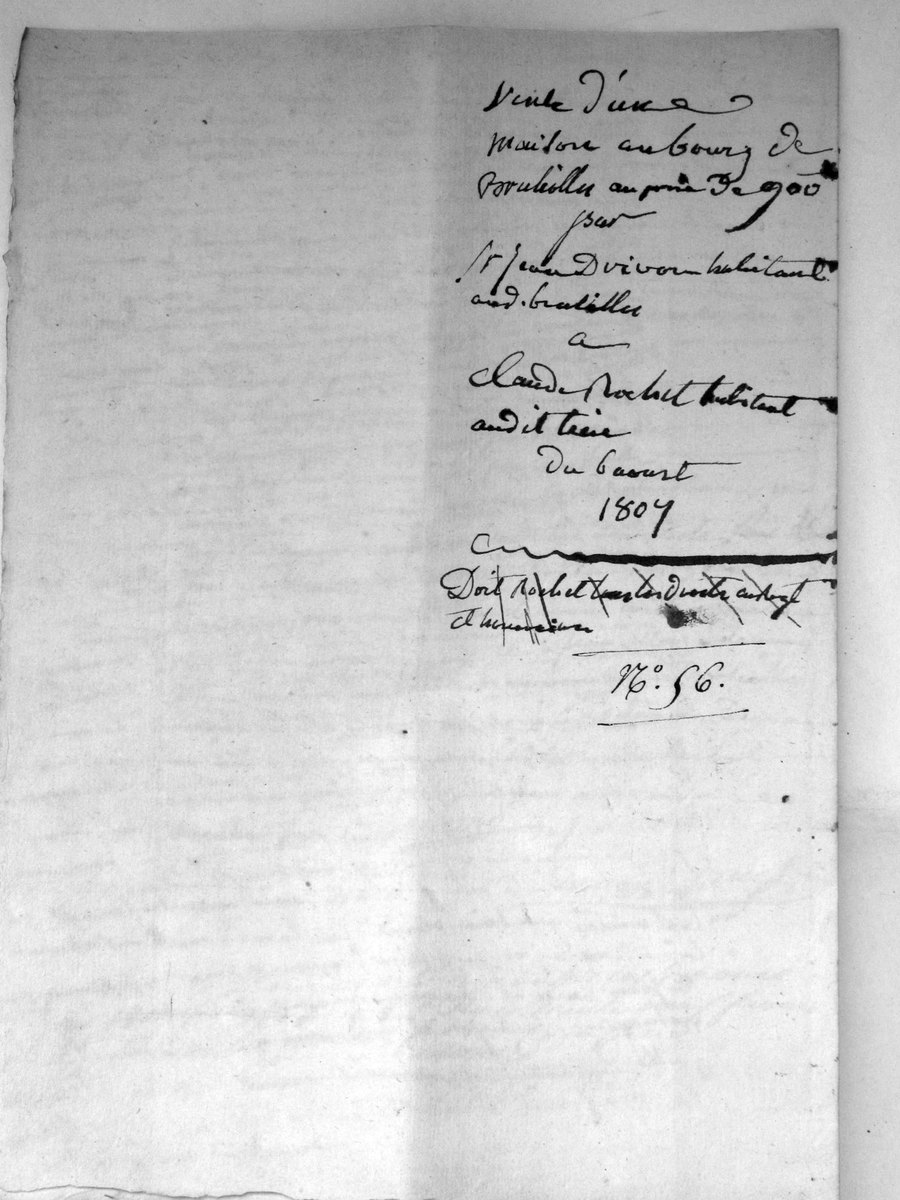 Vente d'une
maison au bourg de
au prix de 900
par
Sr jean habitant
aud.
a
Claude Rochet habitant
audit lieu
du 6 aoust
1807
Doit Rochet tous les droits
et
N.º 56.